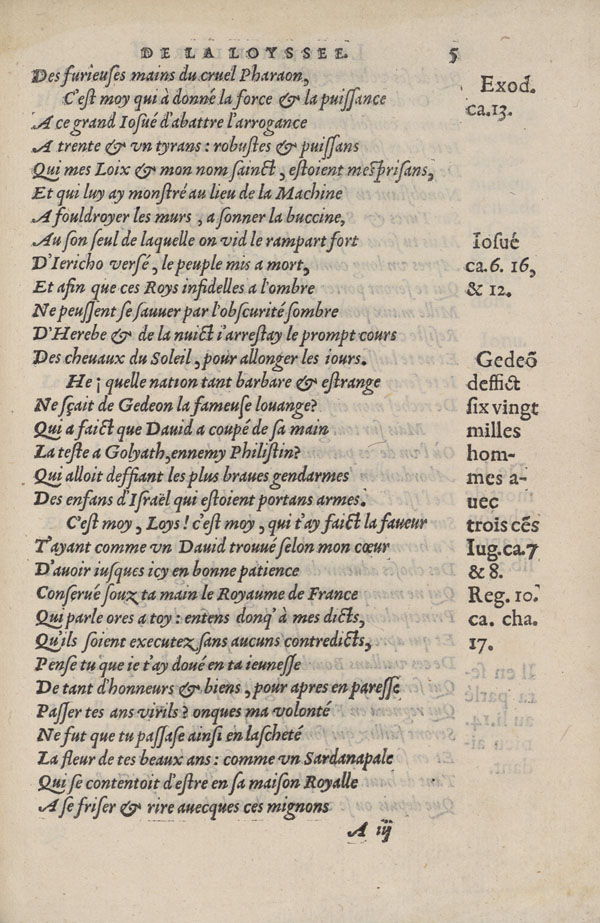 DE LA LOYSSEE. 5
Des furieuſes mains du cruel Pharaon,
C'eſt moy qui à donné la force & la puiſſance
A ce grand Ioſué d'abattre l'arrogance
A trente & vn tyrans : robuſtes & puiſſans
Qui mes Loix & mon nom ſainct, eſtoient meſpriſans,
Et qui luy ay monſtré au lieu de la Machine
A fouldroyer les murs, a ſonner la buccine,
Au ſon ſeul de laquelle on vid le rampart fort
D'Iericho verſé, le peuple mis a mort,
Et afin que ces Roys infidelles a l'ombre
Ne peuſſent ſe ſauuer par l'obſcurité ſombre
D'Herebe & de la nuict i'arreſtay le prompt cours
Des cheuaux du Soleil, pour allonger les iours.
He ¡ quelle nation tant barbare & eſtrange
Ne ſçait de Gedeon la fameuſe louange?
Qui a faict que Dauid a coupé de ſa main
La teſte a Golyath, ennemy Philiſtin?
Qui alloit deffiant les plus braues gendarmes
Des enfans d'Iſraël qui eſtoient portans armes.
C'eſt moy, Loys! c'eſt moy, qui t'ay faict la faueur
T'ayant comme vn Dauid trouué ſelon mon cœur
D'auoir iuſques icy en bonne patience
Conſerué ſouz ta main le Royaume de France
Qui parle ores a toy : entens donq' à mes dicts,
Qu'ils ſoient executez ſans aucuns contredicts,
Penſe tu que ie t'ay doué en ta ieuneſſe
De tant d'honneurs & biens, pour apres en pareſſe
Paſſer tes ans virils? onques ma volonté
Ne fut que tu paſſaſe ainſi en laſcheté
La fleur de tes beaux ans : comme vn Sardanapale
Qui ſe contentoit d'eſtre en ſa maiſon Royalle
A ſe friſer & rire auecques ces mignons
A iij
Exod.
ca.13.
Ioſué
ca.6. 16,
& 12.
Gedeõ
deffict
ſix vingt
milles
hom-
mes a-
uec
trois cẽs
Iug.ca.7
& 8.
Reg. 10.
ca. cha.
17.